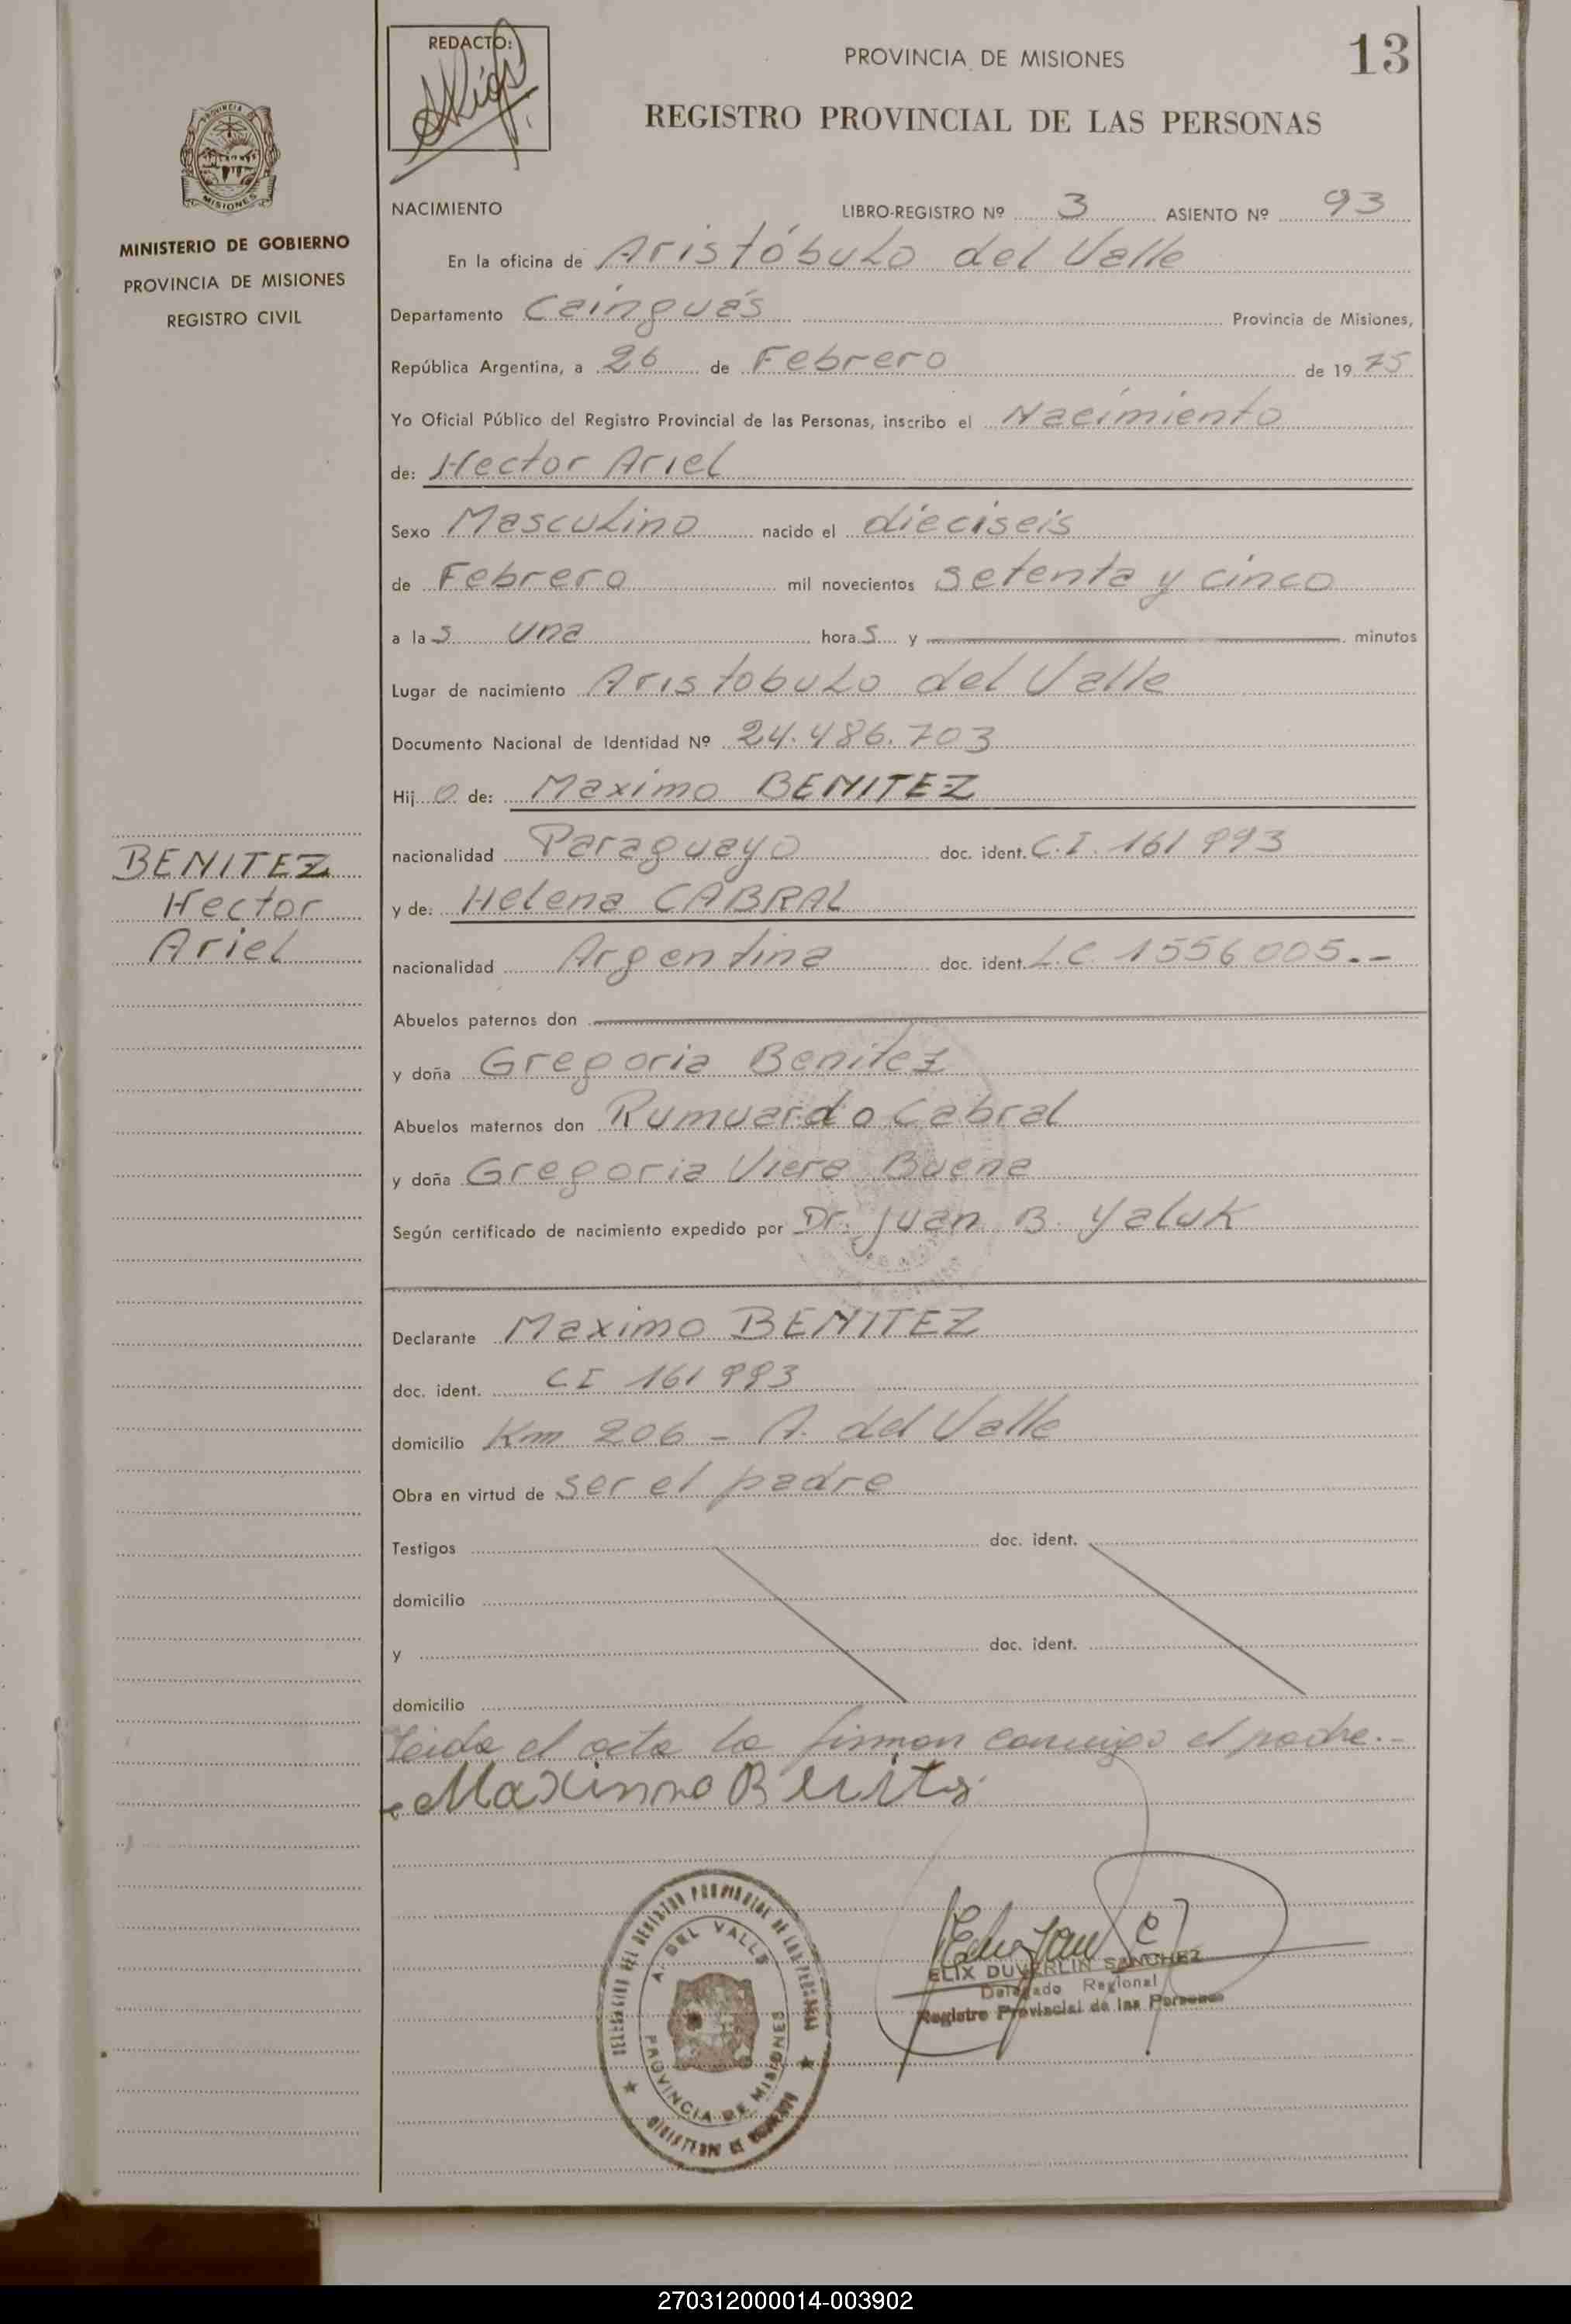 REDACTO:
PROVINCIA DE MISIONES
13
REGISTRO PROVINCIAL DE LAS PERSONAS
PROVINCIA
MISIONES
MINISTERIO DE GOBIERNO
PROVINCIA DE MISIONES
REGISTRO CIVIL
NACIMIENTO LIBRO-REGISTRO Nº 3 ASIENTO Nº 93
En la oficina de Aristóbulo del Valle
Departamento Cainguás Provincia de Misiones,
República Argentina, a 26 de Febrero de 1975
Yo Oficial Público del Registro Provincial de las Personas, inscribo el Nacimiento
de: Hector Ariel
Sexo Masculino nacido el dieciseis
de Febrero mil novecientos setenta y cinco
a las una horas y minutos
Lugar de nacimiento Aristobulo del Valle
Documento Nacional de Identidad Nº 24.486.703
Hijo de: Maximo BENITEZ
nacionalidad Paraguayo doc. ident. C.I. 161993
y de: Helena CABRAL
nacionalidad Argentina doc. ident. L.C. 1556005.-
BENITEZ
Hector
Ariel
Abuelos paternos don
y doña Gregoria Benitez
Abuelos maternos don Rumuardo Cabral
y doña Gregoria Viera Buena
Según certificado de nacimiento expedido por Dr. Juan B. Yaluk
Declarante Maximo BENITEZ
doc. ident. CI 161993
domicilio Km 206 - A. del Valle
Obra en virtud de ser el padre
Testigos doc. ident.
domicilio
y doc. ident.
domicilio
Leida el acta la firman conmigo el padre.-
Maximo Benites
DELEGACION DEL REGISTRO PROVINCIAL DE LAS PERSONAS
A. DEL VALLE
PROVINCIA DE MISIONES
MINISTERIO DE GOBIERNO
ELIX DUVERLIN SANCHEZ
Delegado Regional
Registro Provincial de las Personas
270312000014-003902